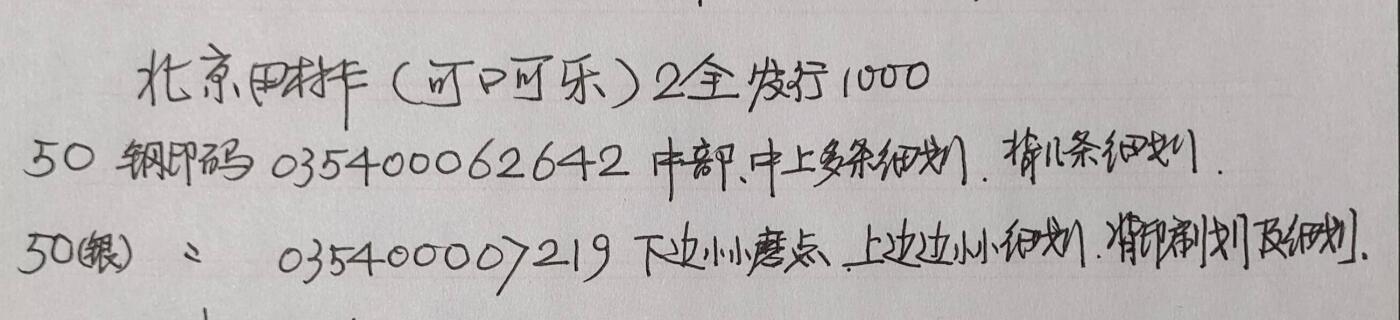 北京田村卡（可口可乐）2全发行1000
50 钢印码 035400062642 中部、中上多条细划．背几条细划．
50(银) 〃 035400007219 下边小小磨点．上边边小小细划．背印刷划及细划．